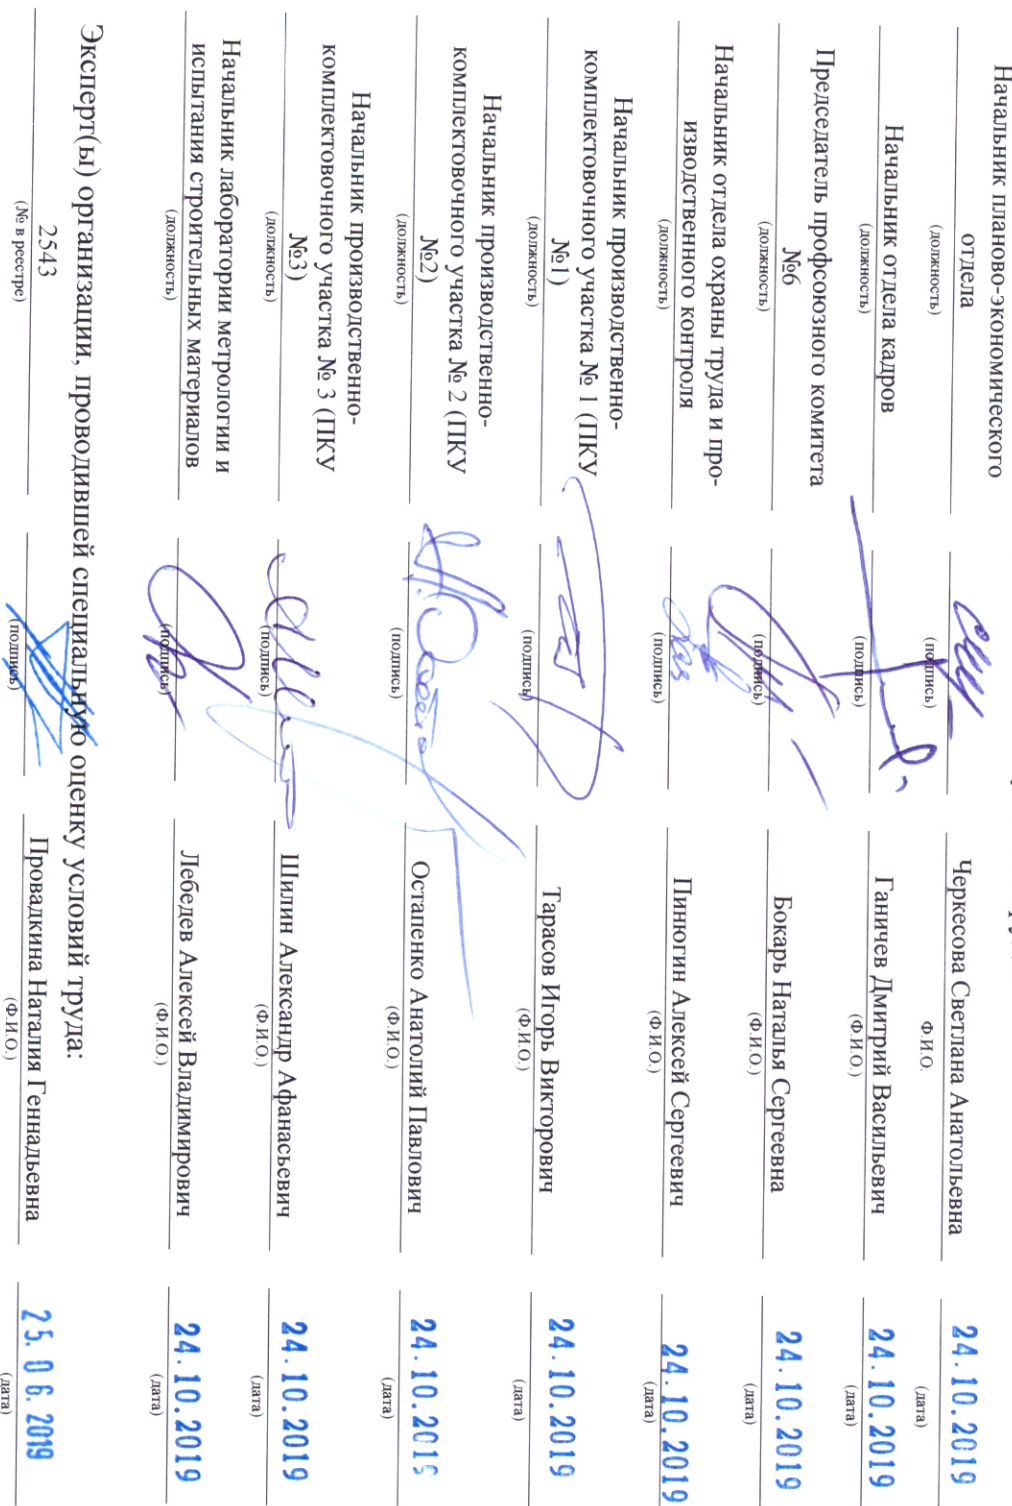 Начальник планово-экономического
отдела Черкесова Светлана Анатольевна 24.10.2019
(должность) (подпись) Ф.И.О. (дата)
Начальник отдела кадров Ганичев Дмитрий Васильевич 24.10.2019
(должность) (подпись) (Ф.И.О.) (дата)
Председатель профсоюзного комитета
№6 Бокарь Наталья Сергеевна 24.10.2019
(должность) (подпись) (Ф.И.О.) (дата)
Начальник отдела охраны труда и про-
изводственного контроля Пинюгин Алексей Сергеевич 24.10.2019
(должность) (подпись) (Ф.И.О.) (дата)
Начальник производственно-
комплектовочного участка № 1 (ПКУ
№1) Тарасов Игорь Викторович 24.10.2019
(должность) (подпись) (Ф.И.О.) (дата)
Начальник производственно-
комплектовочного участка № 2 (ПКУ
№2) Остапенко Анатолий Павлович 24.10.2019
(должность) (подпись) (Ф.И.О.) (дата)
Начальник производственно-
комплектовочного участка № 3 (ПКУ
№3) Шилин Александр Афанасьевич 24.10.2019
(должность) (подпись) (Ф.И.О.) (дата)
Начальник лаборатории метрологии и
испытания строительных материалов Лебедев Алексей Владимирович 24.10.2019
(должность) (подпись) (Ф.И.О.) (дата)
Эксперт(ы) организации, проводившей специальную оценку условий труда:
2543 Провадкина Наталия Геннадьевна 25.06.2019
(№ в реестре) (подпись) (Ф.И.О.) (дата)